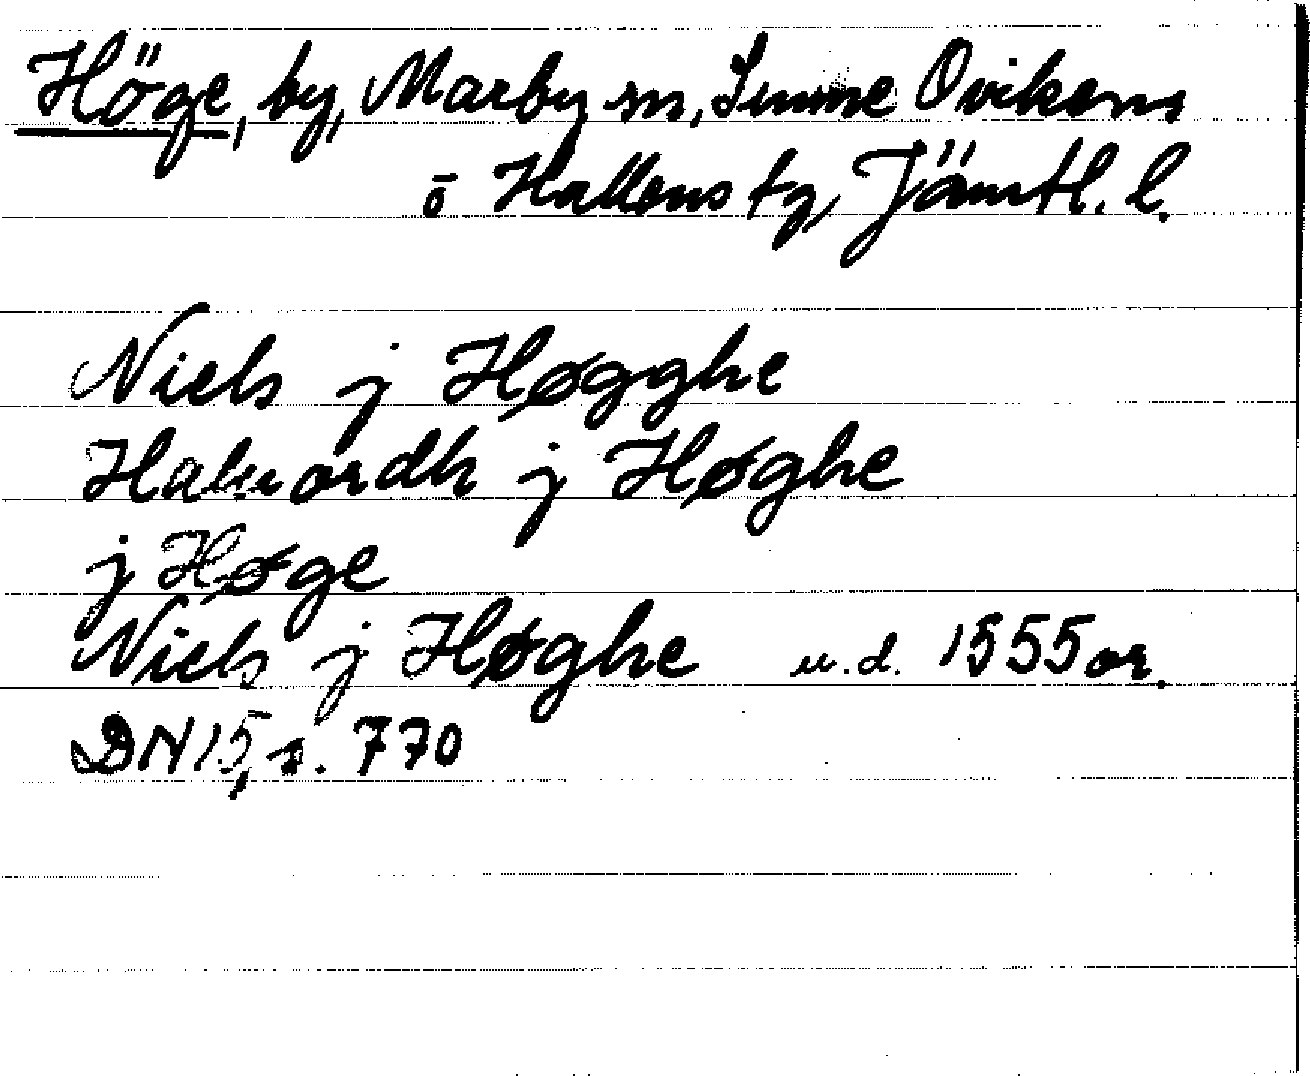 Höge, by, Marby sn, Sunne Ovikens
o Hallens tg, Jämtl. l.
Niels j Høgghe
Haluordh j Høghe
j Høge
Niels j Høghe u.d. 1555 or.
DN 15, s. 770